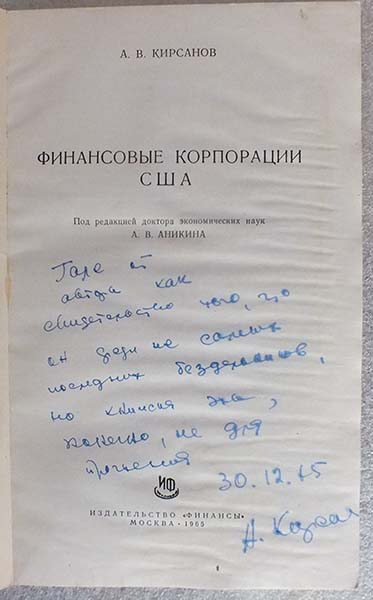 А. В. КИРСАНОВ
ФИНАНСОВЫЕ КОРПОРАЦИИ
США
Под редакцией доктора экономических наук
А. В. АНИКИНА
Гале от
автора как
свидетельство того, что
он среди не самых
последних бездельников,
но книжка эта,
конечно, не для
прочтения
30.12.65
ИФ
ИЗДАТЕЛЬСТВО «ФИНАНСЫ»
МОСКВА · 1965
А.